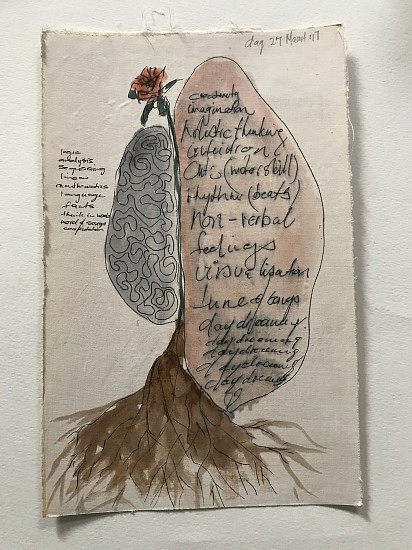 day 27 Mead 47
logic
analysis
sequencing
linear
mathematics
language
facts
think in words
word of songs
computation
creativity
imagination
holistic thinking
intuition
Arts (motor skill)
rhythm (beats)
non-verbal
feelings
visualisation
tune of songs
daydreaming.
daydreaming
daydreaming
daydreaming
daydreams